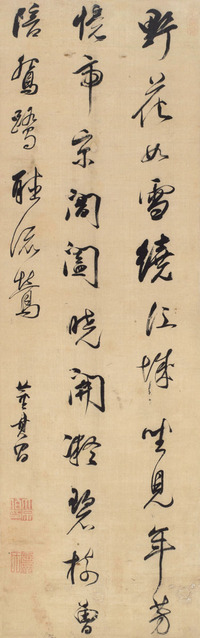 野花如雪繞江城坐見年芳
憶帝京閶闔曉開凝碧樹曾
陪鴛鷺聽流鶯
董其昌